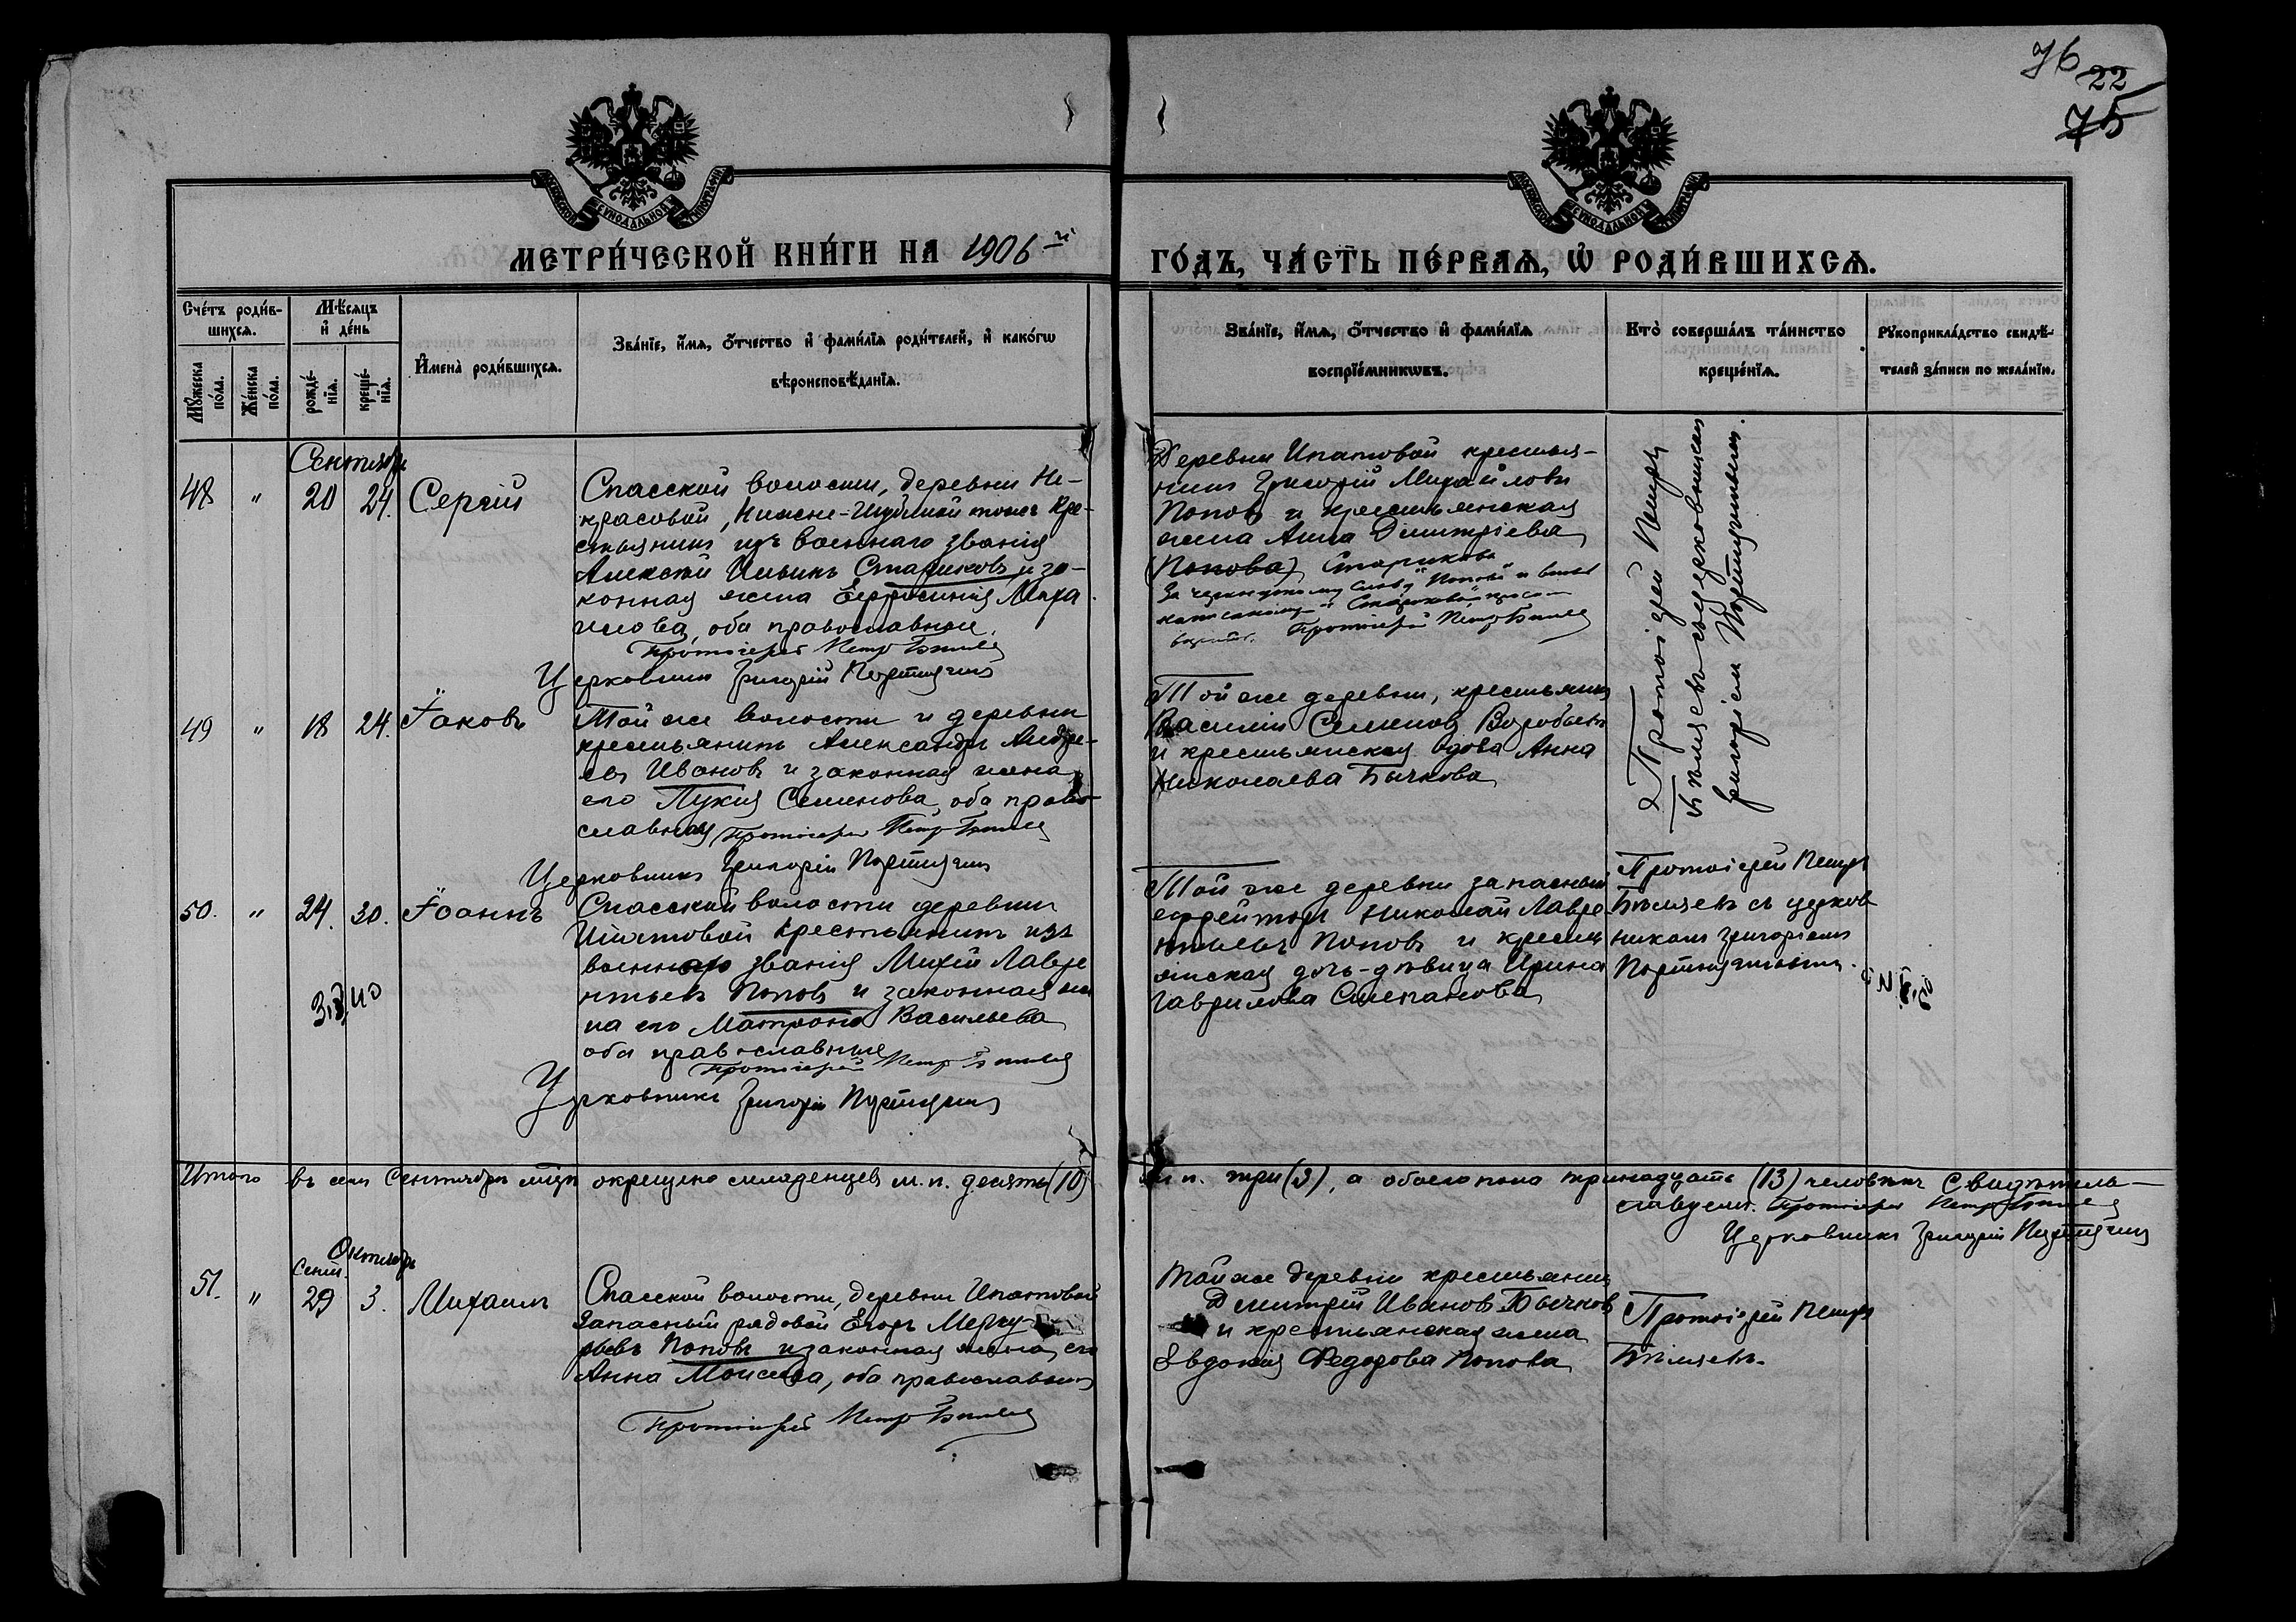 76
22
75
МОСКОВСКОЙ СѴНОДАЛЬНОЙ ТИПОГРАФІИ
МОСКОВСКОЙ СѴНОДАЛЬНОЙ ТИПОГРАФІИ
МЕТРИ́ЧЕСКОЙ КНИ́ГИ НА 1906 й
ГО́ДЪ, ЧА́СТЬ ПЕ́РВАѦ, Ѡ РОДИ́ВШИХСѦ.
Сче́тъ роди́в-
шихсѧ.
Мѣ́сѧцъ
и҆ де́нь
Мꙋ́жеска
по́ла.
Же́нска
по́ла.
рожде́-
нїѧ.
креще́-
нїѧ.
И҆мена̀ роди́вшихсѧ.
Зва́нїе, и҆́мѧ, ѻ҆́тчество и҆ фами́лїѧ роди́телей, и҆ како́гѡ
вѣроисповѣ́данїѧ.
Зва́нїе, и҆́мѧ, ѻ҆́тчество и҆ фами́лїѧ
воспрїе́мникѡвъ.
Кто̀ соверша́лъ та́инство
креще́нїѧ.
Рꙋкоприкла́дство свидѣ́-
телей за́писи по жела́нїю.
Сентябрь
48 " 20 24. Сергій
Спасской волости, деревни Не-
красовой, Нижне-Шубиной тожъ кре-
стьянинъ изъ военнаго званія
Алексѣй Ильинъ Стариковъ и за-
конная жена Ефросинія Миха
илова, оба православные.
Протоіерей Петръ Бѣляевъ
Церковникъ Григорій
Деревни Ипатовой крестья-
нинъ Григорій Михайловъ
Поповъ и крестьянская
жена Анна Димитріева
(Попова) Старикова
За зачеркнутому слову "Попова" и вновь
написанному "Старикова"
Протоіерей Петръ Бѣляевъ
Протоіерей Петръ
Бѣляевъ съ церковникомъ
Григоріем
49 " 18 24. Іаковъ
Той же волости и деревни
крестьянинъ Александръ Андре-
евъ Ивановъ и законная жена
его Лукія Семенова, оба право-
славные Протоіерей Петръ Бѣляевъ
Церковникъ Григорій
Той же деревни, крестьянинъ
Василій Семеновъ Воробьевъ
и крестьянская вдова Анна
Николаева Бычкова
50. " 24. 30. Іоаннъ
Спасской волости деревни
Ипатовой крестьянинъ изъ
военнаго званія Михей Лавре
нтьевъ Поповъ и законная же
на его Матрона Васильева
оба православные
Протоіерей Петръ Бѣляевъ
Церковникъ Григорій
Той же деревни запасный
ефрейторъ Николай Лавре
нтьевъ Поповъ и крестья
янская дочь-дѣвица Ирина
Гаврилова Степанова
Протоіерей Петръ
Бѣляевъ съ церков
никомъ Григоріемъ
Итого въ семъ Сентябрѣ мѣсяцѣ окрещено младенцевъ м.п. десять (10)
ж.п. три (3), а обоего пола тринадцать (13) человѣкъ Свидѣтель-
ствуемъ. Протоіерей Петръ Бѣляевъ
Церковникъ Григорій
Октябрь
Сент.
51. " 29 3. Михаилъ
Спасской волости, деревни Ипатовой
Запасный рядовой Егоръ Мерку-
рьевъ Поповъ и законная жена его
Анна Моисеева, оба православные
Протоіерей Петръ Бѣляевъ
Той же деревни крестьянинъ
Димитрій Ивановъ Бычков
и крестьянская жена
Евдокія Федорова Попова
Протоіерей Петръ
Бѣляевъ.